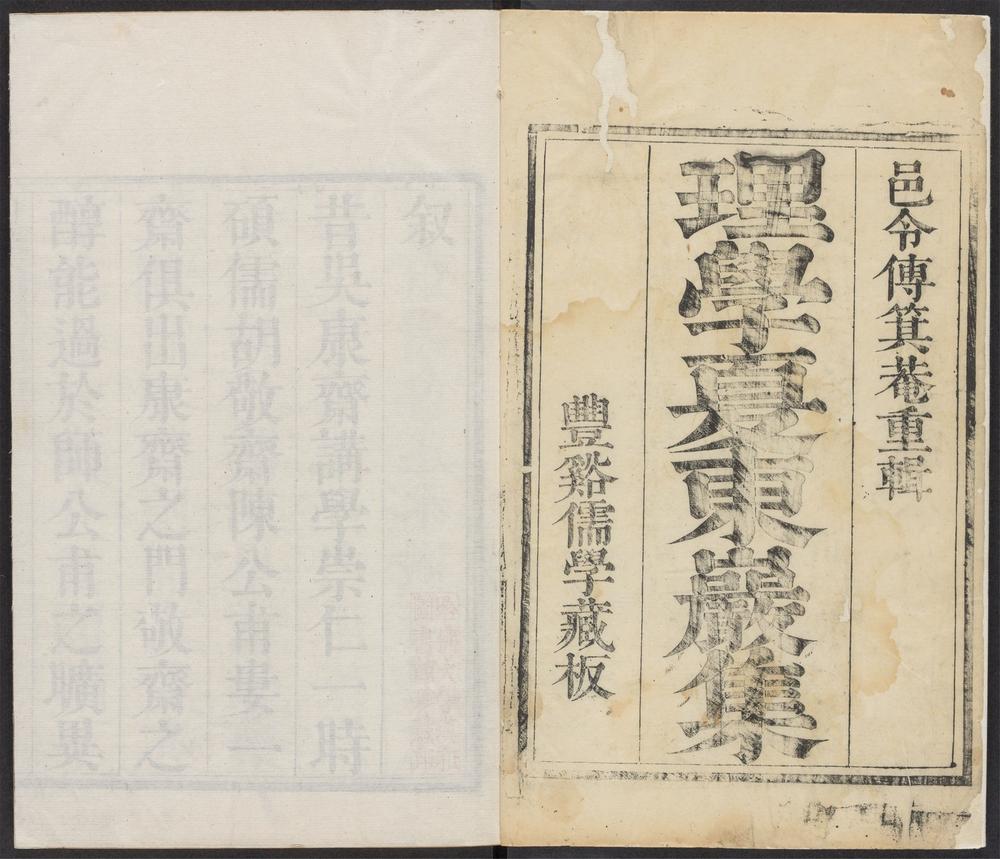 邑令傅箕菴重輯
理學夏東巖集
豐谿儒學藏板
叙
昔吳康齋講學崇仁一時
碩儒胡敬齋陳公甫婁一
齋俱出康齋之門敬齋之
醇能過於師公甫之異